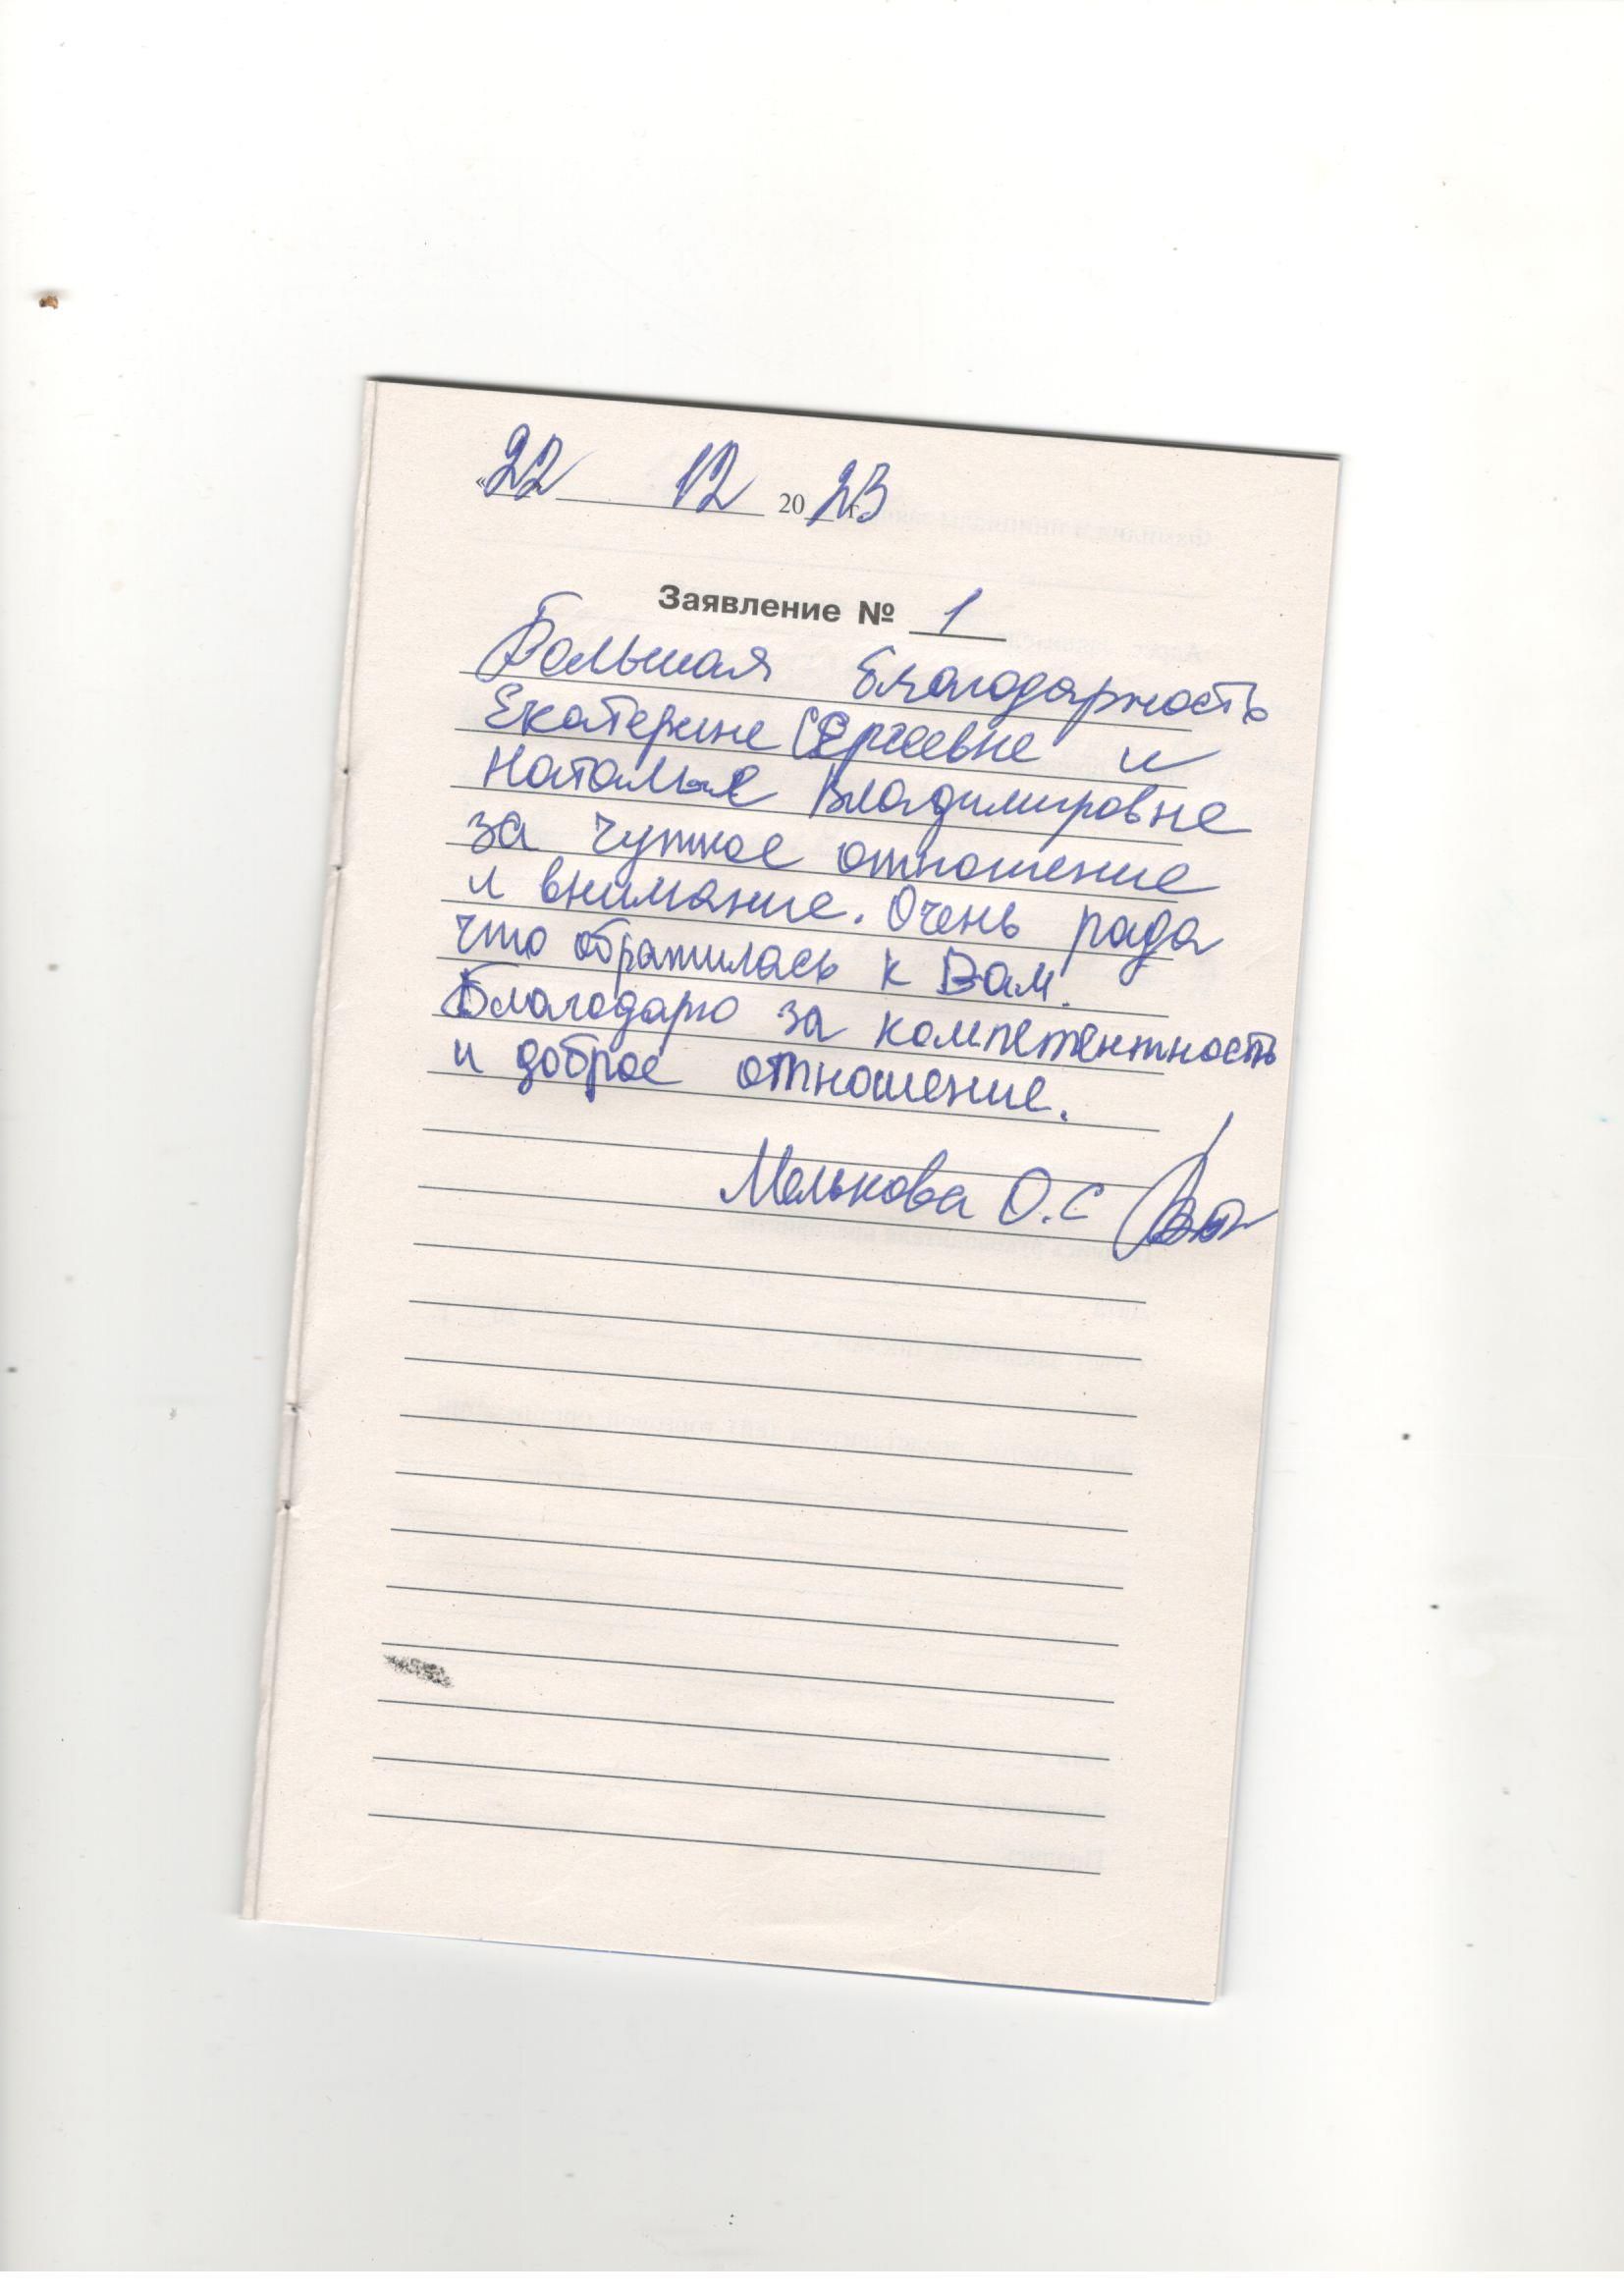 «22 12 2023 г.
Заявление № 1
Большая благодарность
Екатерине Сергеевне и
Наталье Владимировне
за чуткое отношение
и внимание. Очень рада
что обратилась к Вам.
Благодарю за компетентность
и доброе отношение.
Мелькова О.С